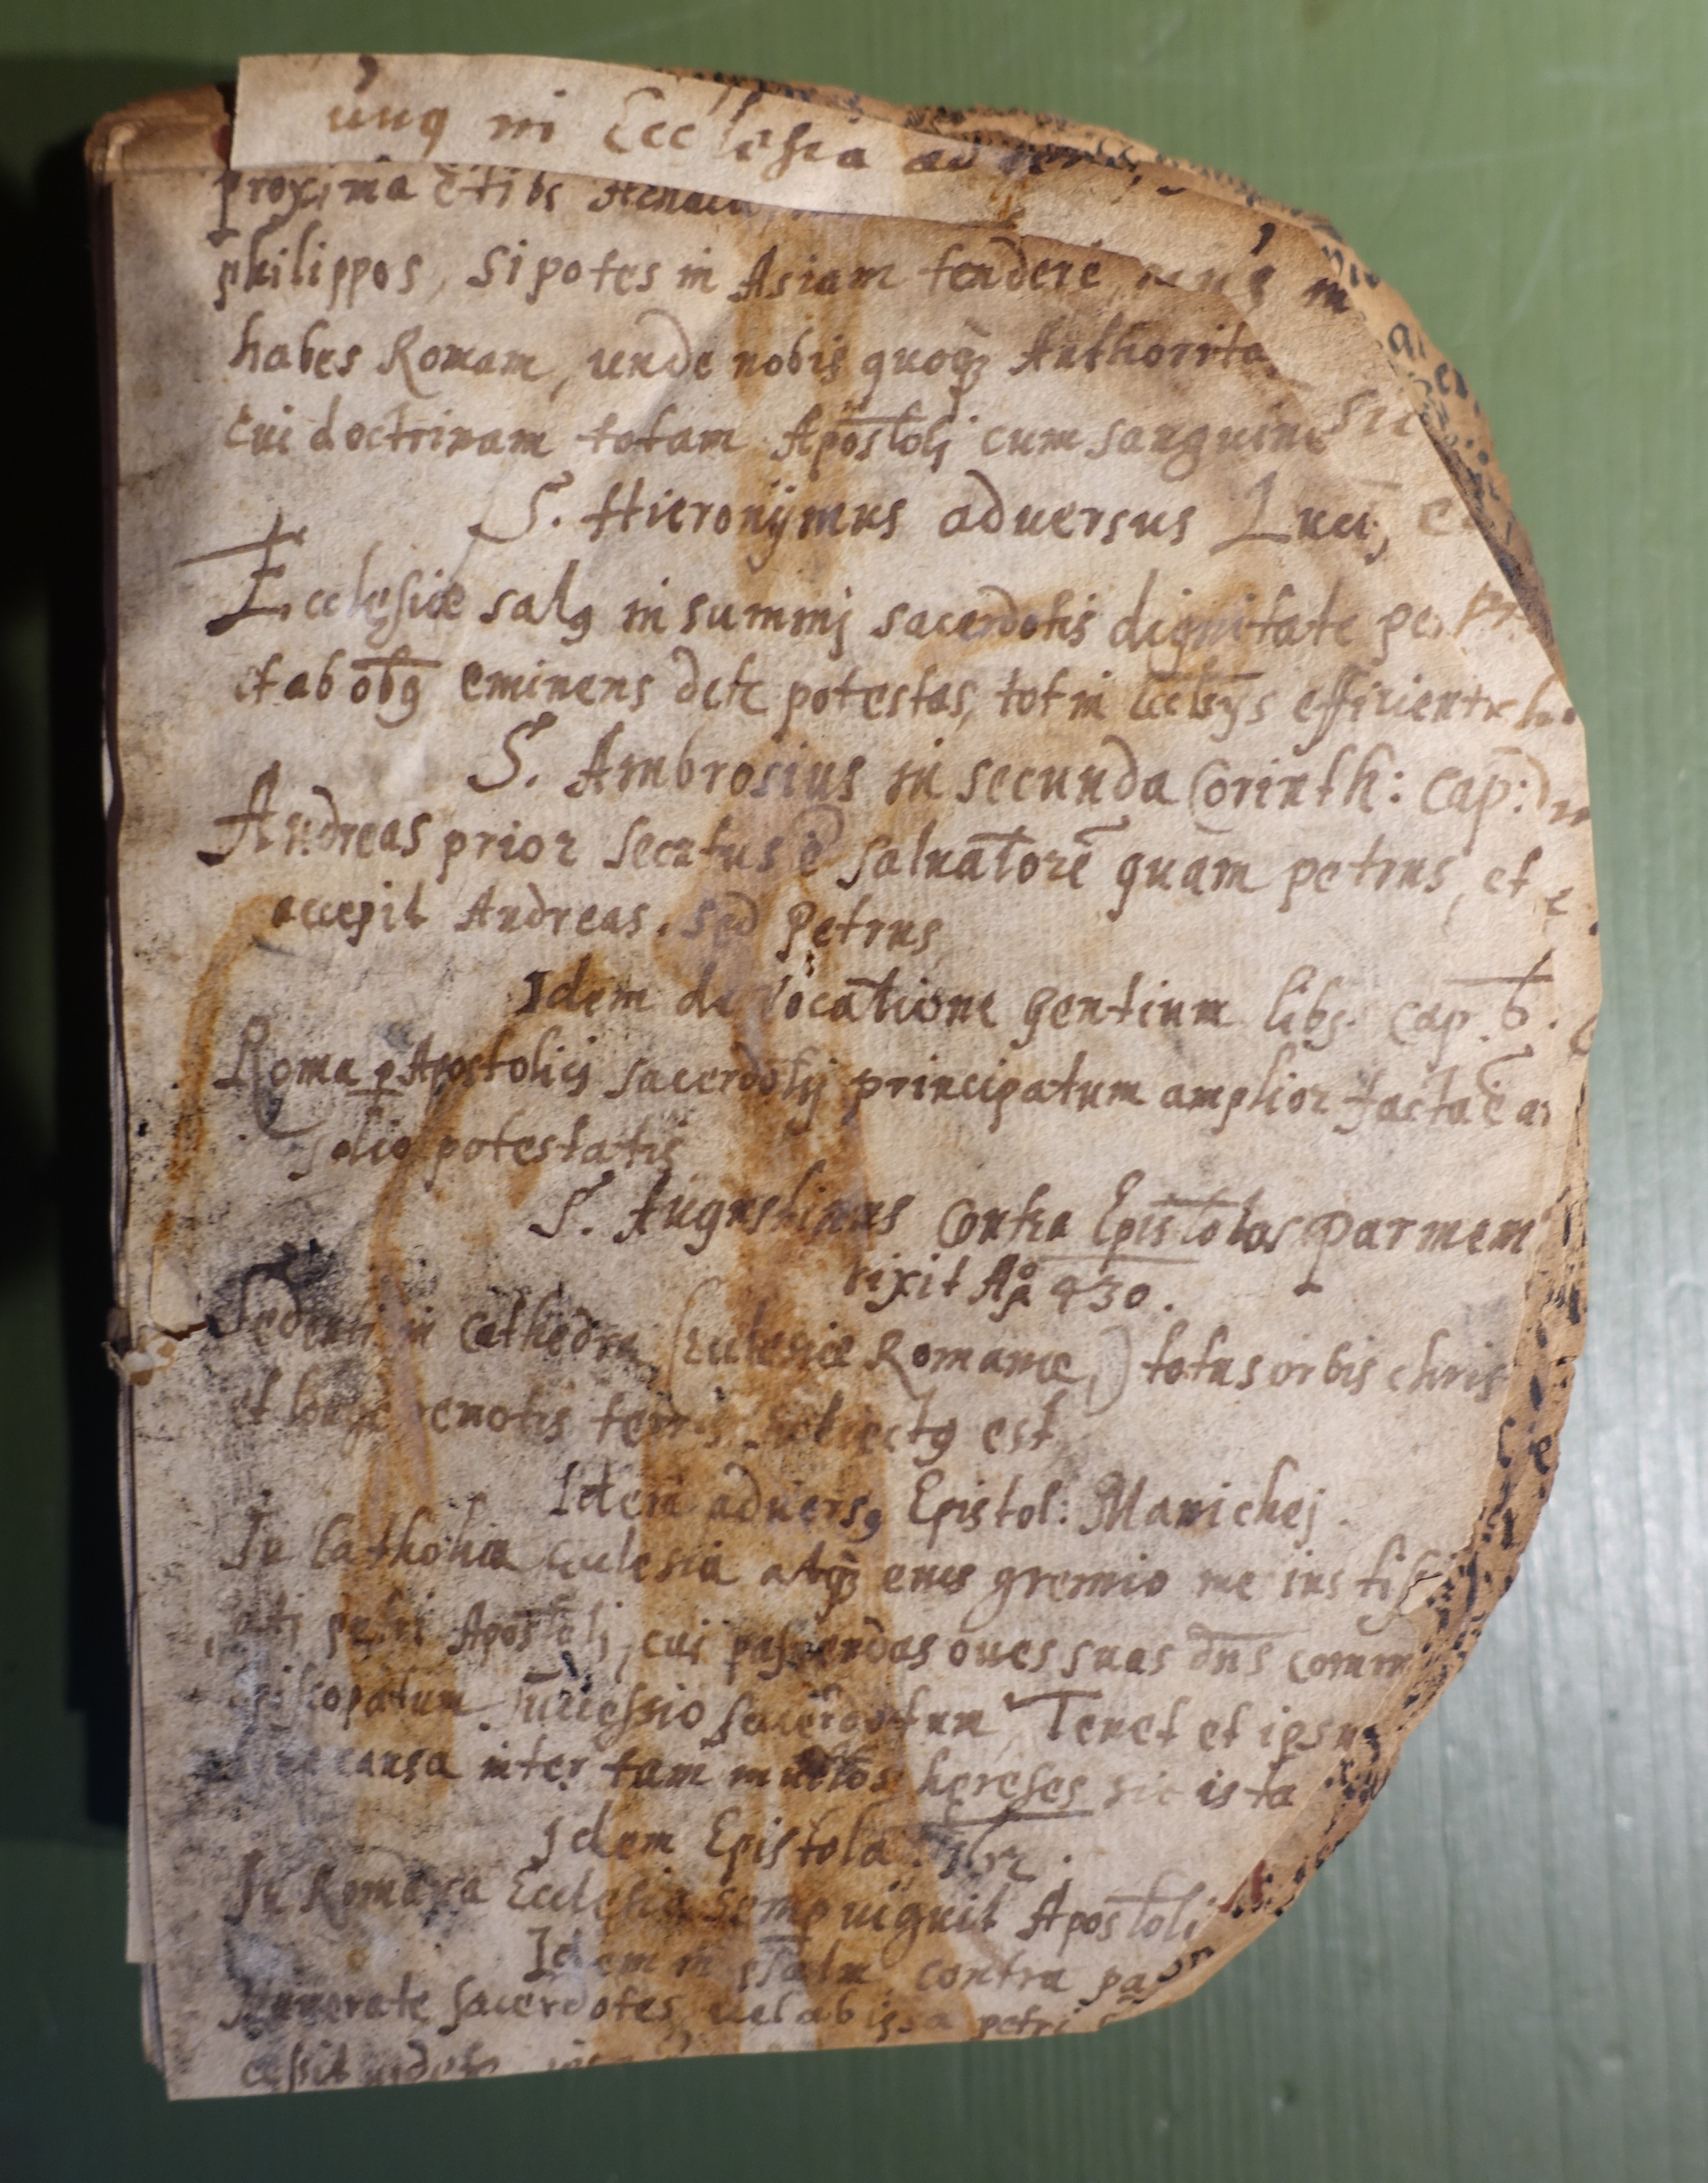 unq in Ecclesia ad
proxima è tibi Achaia
philippos, si potes in Asiam tendere
habes Romam, unde nobis quoqȝ Authorita
cui doctrinam totam Apostolj cum sanguine
S. Hieronÿmus aduersus Luci
Ecclesiæ salꝯ in summj sacerdotis dignitate pe
et ab oībꝯ eminens detr potestas, tot in eccl̄sÿs efficientr
S. Ambrosius in secunda Corinth: cap:
Andreas prior secutus ē saluatorē quam petrus, et
accepit Andreas. sed Petrus
Idem de vocatione gentium libs. cap. 6.
Roma ꝑ Apostolicj sacerdotij principatum amplior facta ē
solio potestatis
S. Augustinus contra Epistolas Parmem
vixit Aō 430.
Sedenti in cathedra (ecclesiæ Romanæ,) totus orbis chris
et longe remotis terris subiectꝯ est
Idem aduersꝯ Epistol: Manichej
In Catholica Ecclesia atqȝ eius gremio me
petri Apostolj, cui pascendas oues suas dn̄s comm
episcopatum successio sacerdotum Tenet et ipsu
causa inter tam multos hereses sic ista
Idem Epistola 162.
In Romana Ecclesia semꝑ uiguit Apostoli
Idem in psalm contra pa
Numerate sacerdotes uel ab ipsa petri
cessit uidete